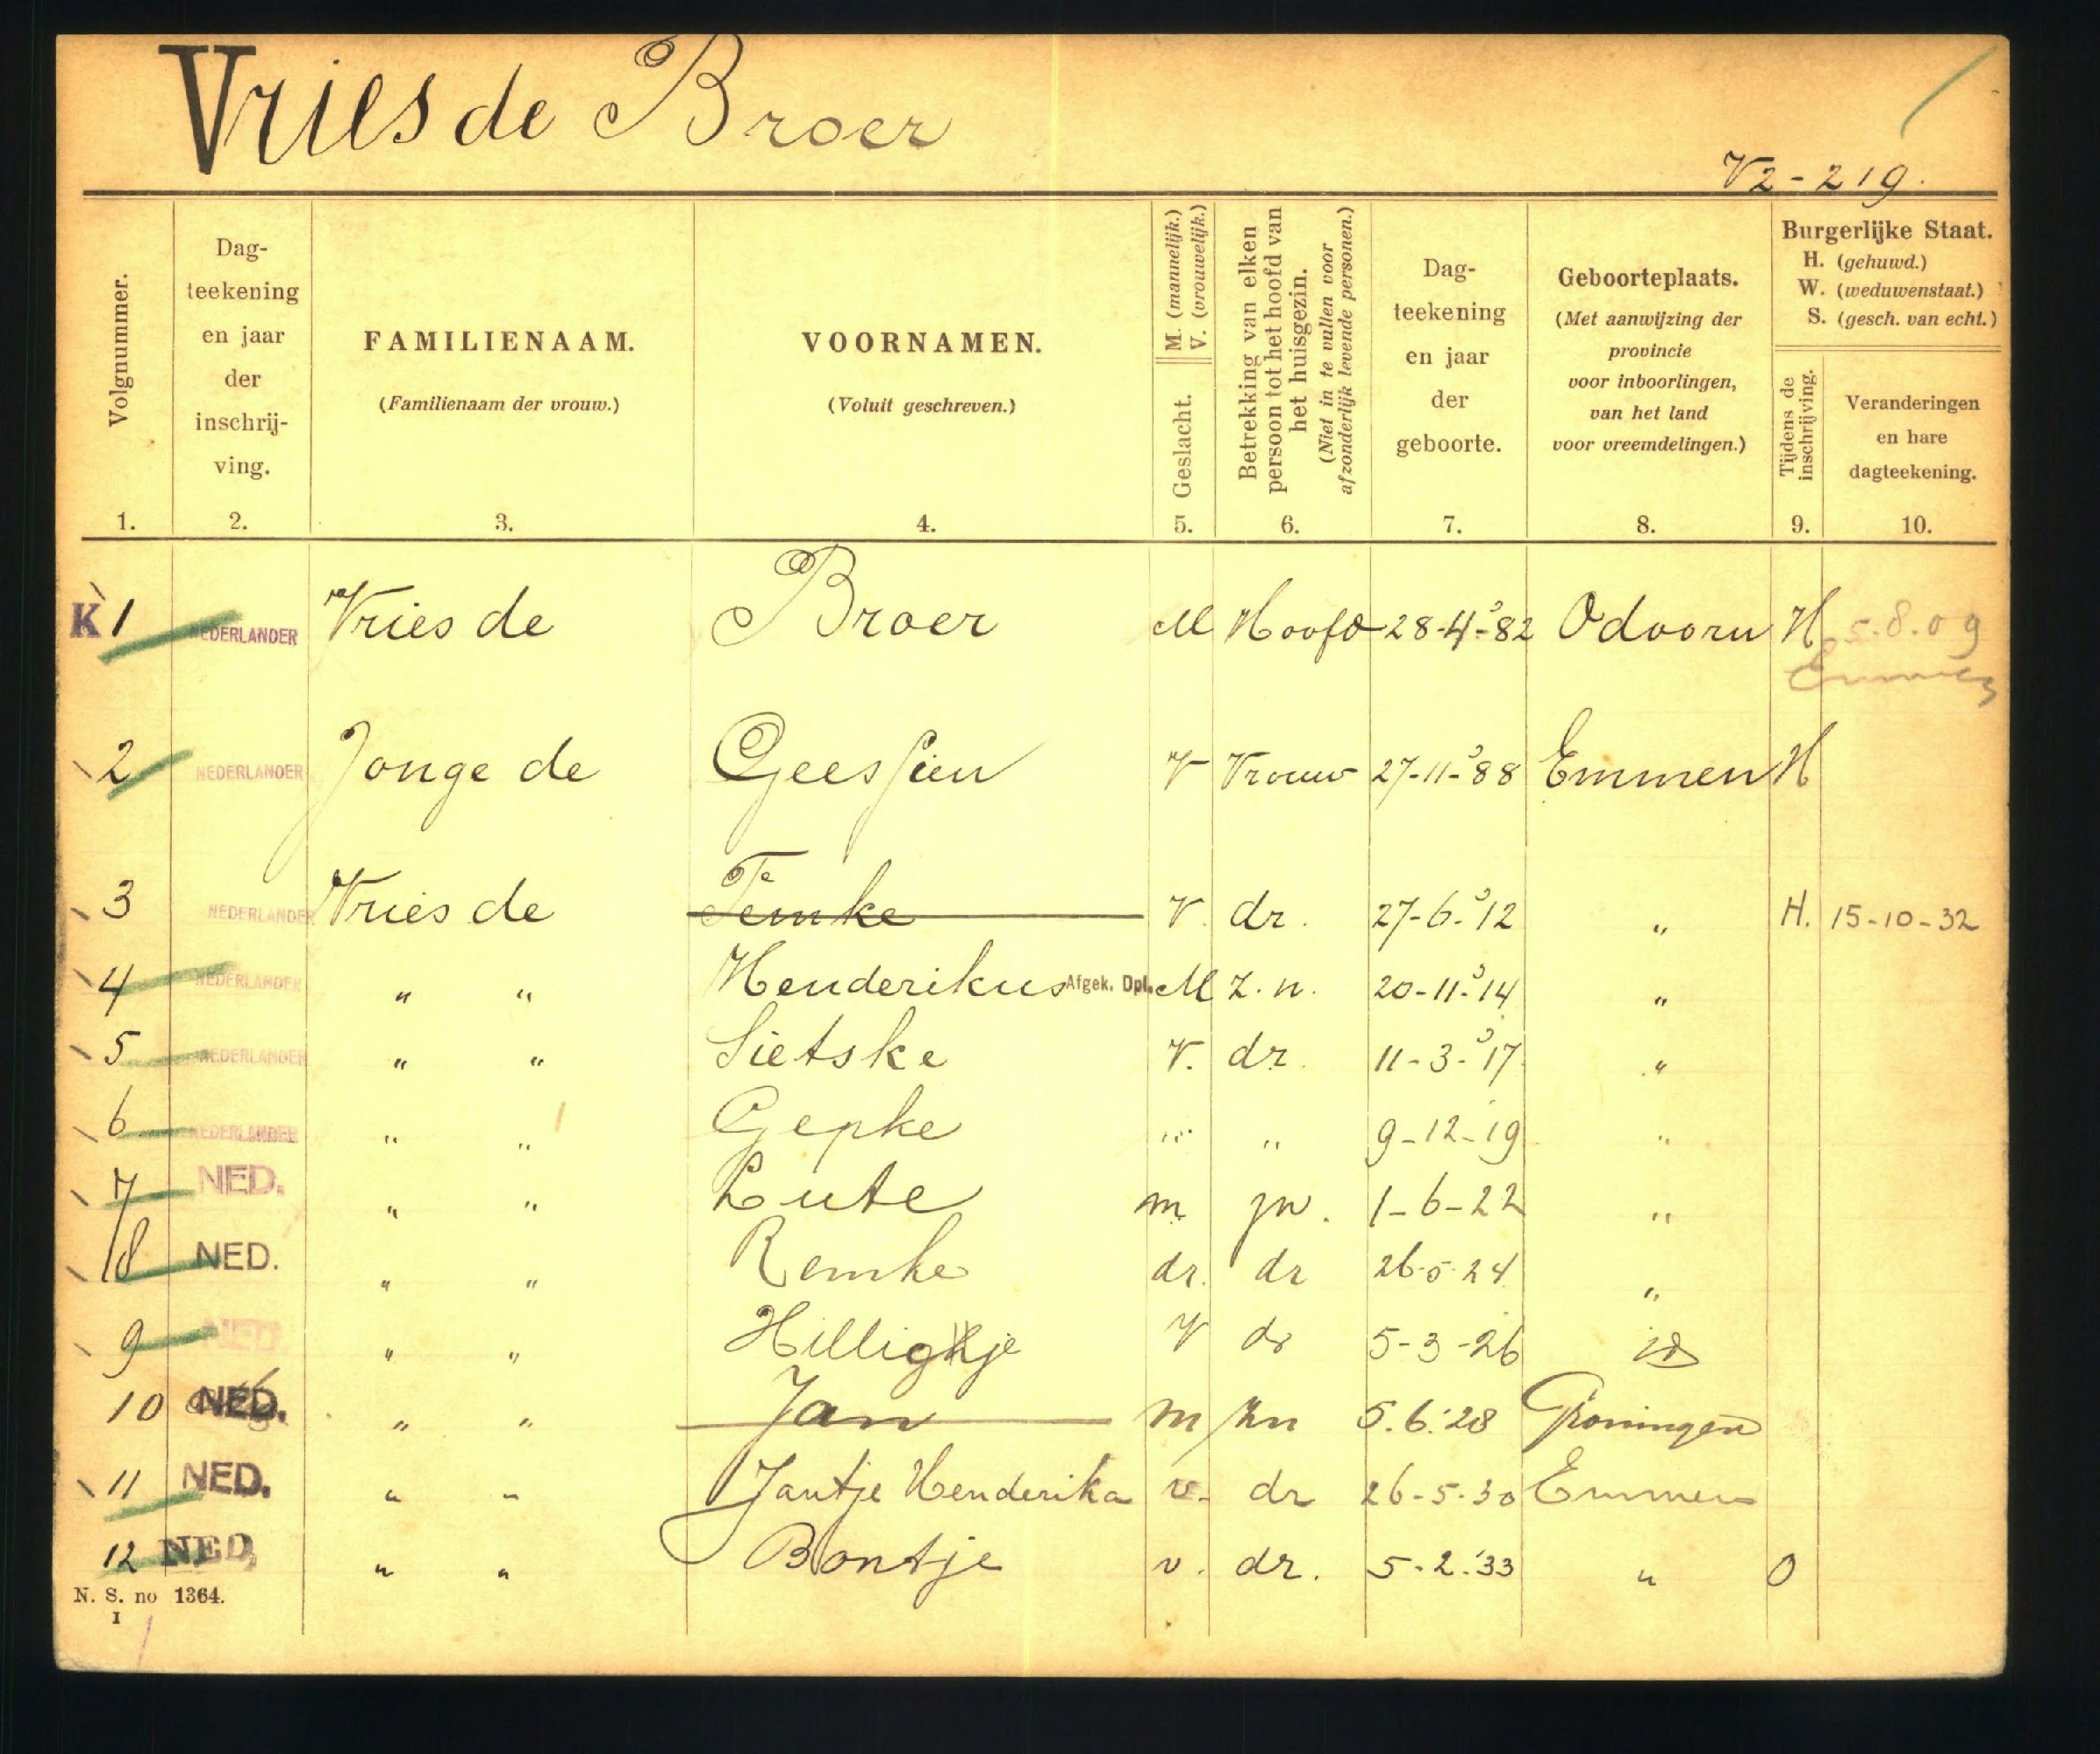 Vries de Broer
V2-219.
Volgnummer.
Dag-
teekening
en jaar
der
inschrij-
ving.
FAMILIENAAM.
(Familienaam der vrouw.)
VOORNAMEN.
(Voluit geschreven.)
M. (mannelijk.)
V. (vrouwelijk.)
Geslacht.
Betrekking van elken
persoon tot het hoofd van
het huisgezin.
(Niet in te vullen voor
afzonderlijk levende personen.)
Dag-
teekening
en jaar
der
geboorte.
Geboorteplaats.
(Met aanwijzing der
provincie
voor inboorlingen,
van het land
voor vreemdelingen.)
Burgerlijke Staat.
H. (gehuwd.)
W. (weduwenstaat.)
S. (gesch. van echt.)
Tijdens de
inschrijving.
Veranderingen
en hare
dagteekening.
1. 2. 3. 4. 5. 6. 7. 8. 9. 10.
K 1 NEDERLANDER Vries de Broer M Hoofd 28-4-'82 Odoorn H 5.8.09
Emmen
2 NEDERLANDER Jonge de Geessien V Vrouw 27-11-'88 Emmen H
3 NEDERLANDER Vries de Temke V. dr. 27-6-'12 " H. 15-10-32
4 NEDERLANDER " " Henderikus Afgek. Dpl. M z.n. 20-11-'14 "
5 NEDERLANDER " " Sietske V. dr. 11-3-'17 "
6 NEDERLANDER " " Gepke " " 9-12-19 "
7 NED. " " Lute m zn. 1-6-22 "
8 NED. " " Remke dr. dr 26-5-24 "
9 NED. " " Hilligje V dr 5-3-26 id
10 NED. " " Jan m zn 5.6.'28 Groningen
11 NED. " " Jantje Henderika v. dr 26-5-30 Emmen
12 NED. " " Bontje v. dr. 5-2-'33 " O
N. S. no 1364.
I